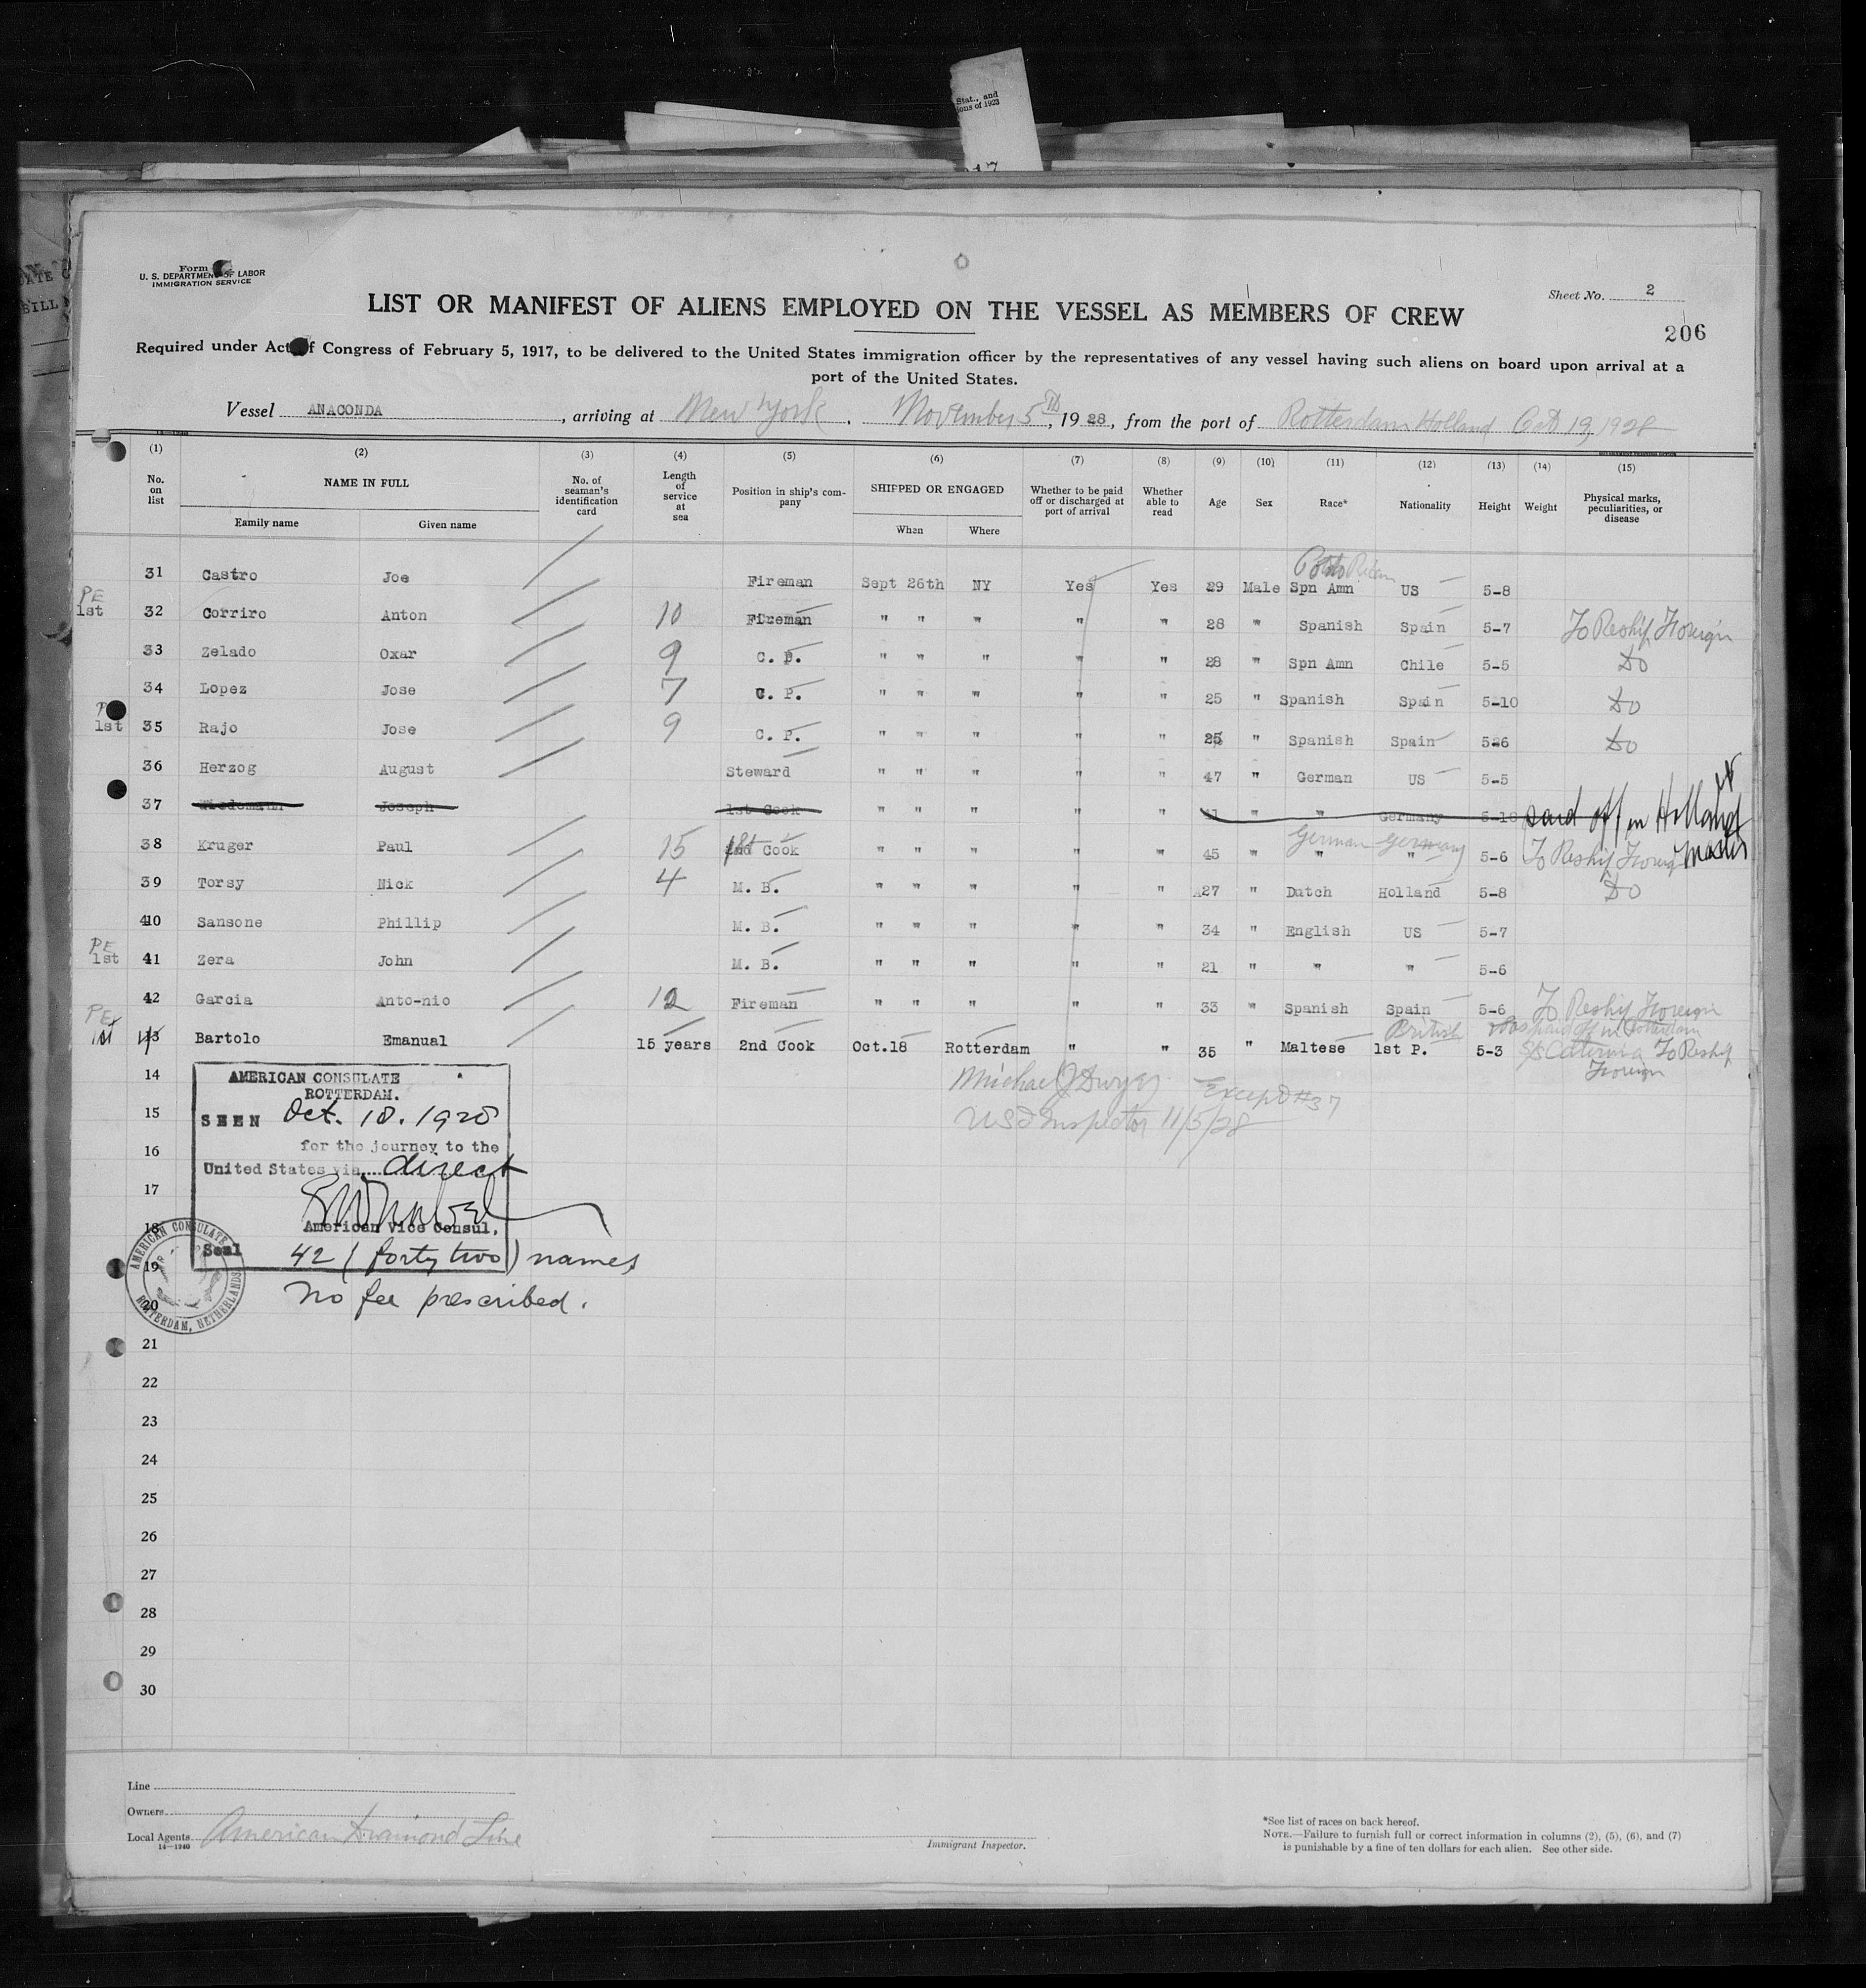 Stat., and
ions of 1923
Form
U. S. DEPARTMENT OF LABOR
IMMIGRATION SERVICE
Sheet No. 2
LIST OR MANIFEST OF ALIENS EMPLOYED ON THE VESSEL AS MEMBERS OF CREW
206
Required under Act of Congress of February 5, 1917, to be delivered to the United States immigration officer by the representatives of any vessel having such aliens on board upon arrival at a
port of the United States.
Vessel ANACONDA, arriving at New York, November 5th, 1928, from the port of Rotterdam Holland Oct 19, 1928
(1) (2) (3) (4) (5) (6) (7) (8) (9) (10) (11) (12) (13) (14) (15)
No. on list NAME IN FULL Family name Given name No. of seaman's identification card Length of service at sea Position in ship's company SHIPPED OR ENGAGED When Where Whether to be paid off or discharged at port of arrival Whether able to read Age Sex Race* Nationality Height Weight Physical marks, peculiarities, or disease
31 Castro Joe Fireman Sept 26th NY Yes Yes 29 Male Spn Amn Porto Rican US 5-8
PE 1st 32 Corriro Anton 10 Fireman " " " " " 28 " Spanish Spain 5-7 To Reship Foreign
33 Zelado Oxar 9 C. P. " " " " " 28 " Spn Amn Chile 5-5 Do
34 Lopez Jose 7 C. P. " " " " " 25 " Spanish Spain 5-10 Do
1st 35 Rajo Jose 9 C. P. " " " " " 25 " Spanish Spain 5-6 Do
36 Herzog August Steward " " " " " 47 " German US 5-5
37 Wiedemann Joseph 1st Cook " " " " " 41 " " Germany 5-10 paid off in Holland
38 Kruger Paul 15 1st 2nd Cook " " " " " 45 " " German " Germany 5-6 To Reship Foreign Master
39 Torsy Nick 4 M. B. " " " " " 27 " Dutch Holland 5-8 Do
40 Sansone Phillip M. B. " " " " " 34 " English US 5-7
PE 1st 41 Zera John M. B. " " " " " 21 " " " 5-6
42 Garcia Anto-nio 12 Fireman " " " " " 33 " Spanish Spain 5-6 To Reship Foreign
PE 1st 43 Bartolo Emanual 15 years 2nd Cook Oct.18 Rotterdam " " 35 " Maltese British 1st P. 5-3 Was paid off in Rotterdam
S/S Caterina To Reship
Foreign
14
Michael J Dwyer Except #37
US I Inspector 11/5/28
AMERICAN CONSULATE
ROTTERDAM.
15 SEEN Oct. 18. 1928
16 for the journey to the
United States via direct
17
18 American Vice Consul.
AMERICAN CONSULATE
ROTTERDAM, NETHERLANDS
19 Seal 42 (forty two) names
20 No fee prescribed.
21
22
23
24
25
26
27
28
29
30
Line
Owners
Local Agents American Diamond Line
14—1240
Immigrant Inspector.
*See list of races on back hereof.
NOTE.—Failure to furnish full or correct information in columns (2), (5), (6), and (7)
is punishable by a fine of ten dollars for each alien. See other side.